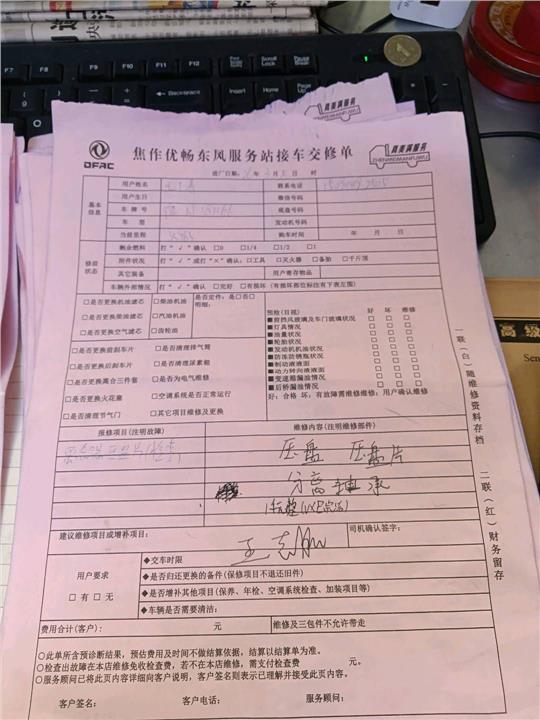 F7 F8 F9 F10 F11 F12
Scroll Lock
Backspace Insert Home
DFAC
焦作优畅东风服务站接车交修单
真美满服务
ZHENMEIMANFUWU
进厂日期: 年 月 日 时
基本信息
用户姓名 联系电话
用户生日 微信号码
车牌号 底盘号码
车型 发动机号码
当前里程 购车时间 年 月 日
修前状态
剩余燃料 打“√”确认 □0 □1/4 □1/2 □1
附件状况 打“√”或打“×”确认: □工具 □灭火器 □备胎 □千斤顶
其它装备 用户寄存物品
车辆外部情况 打“√”确认 □完好 □有损坏(有损坏部位标注有下表左图)
□是否更换机油滤芯 □柴油机油 是否定件: □是□否
□是否更换柴油滤芯 □汽油机油 明细:
□是否更换空气滤芯 □齿轮油
□是否更换前刹车片 □是否清理排气筒
□是否更换后刹车片 □是否清理尿素箱
□是否更换离合三件套 □是否为电气维修
□是否更换火花塞 □空调系统是否正常运行
□是否清理节气门 □其它项目维修及更换
预检(目视) 好 坏 维修
■前挡风玻璃及车门玻璃状况 □ □ □
■灯具情况 □ □ □
■油量状况 □ □ □
■轮胎状况 □ □ □
■发动机机油状况 □ □ □
■防冻防锈瓶状况 □ □ □
■制动液液面 □ □ □
■动力转向液液面 □ □ □
■变速箱漏油情况 □ □ □
■后桥漏油情况 □ □ □
好: 合格 坏: 有故障需维修维修: 用户确认维修
报修项目(注明故障) 维修内容(注明维修部件)
压盘 压盘片
分离轴承
建议维修项目或增补项目: 司机确认签字:
用户要求
□有 □无
◆交车时限
◆是否归还更换的备件(保修项目不退还旧件)
◆是否增补其他项目(保养、年检、空调系统检查、加装项目等)
◆车辆是否需要清洁:
费用合计(客户): 元 维修及三包件不允许带走
○此单所含预诊断结果,预估费用及时间不做结算依据,结算以结算单为准。
○检查出故障在本店维修免收检查费,若不在本店维修,需支付检查费 元。
○服务顾问已将此页内容详细向客户说明,客户签名则表示已理解并接受此页内容。
客户签名: 客户电话: 服务顾问:
一联(白)随维修资料存档
二联(红)财务留存
高级
Sen